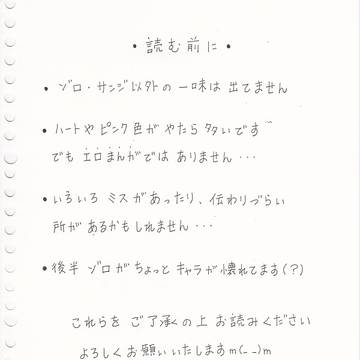 ・読む前に・
・ゾロ・サンジ以外の一味は出てません
・ハートやピンク色がやたら多いです
でもエロまんがではありません・・・
・いろいろミスがあったり、伝わりづらい
所があるかもしれません・・・
・後半ゾロがちょっとキャラが壊れてます(？)
これらをご了承の上お読みください
よろしくお願いいたしますm(_ _)m